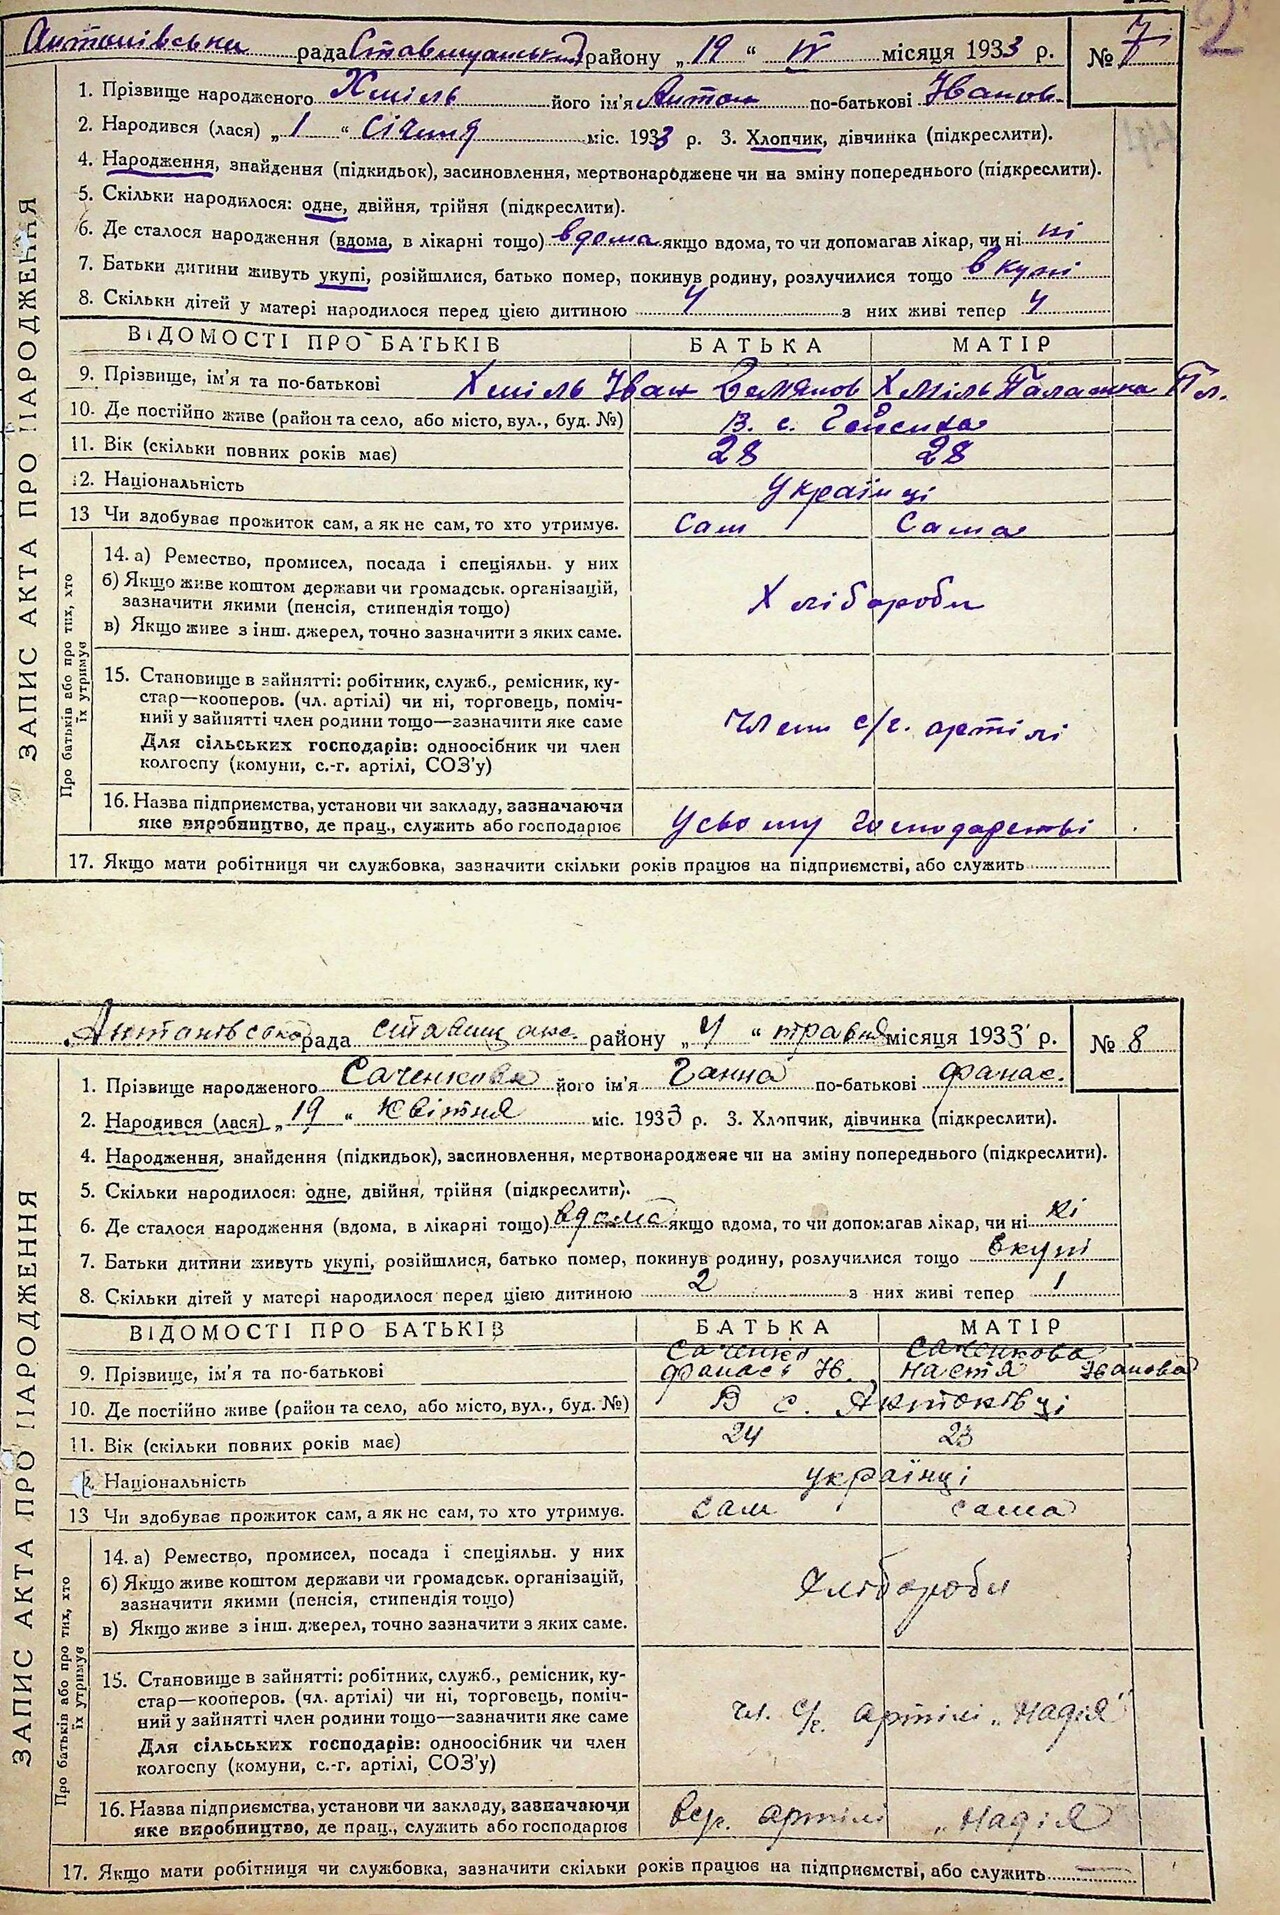 Антонівська рада Ставищанський району „ 19 “ IV місяця 1933 р. № 7
1. Прізвище народженого Хміль його ім'я Антон по-батькові Іванов.
2. Народився (лася) „ 1 “ січня міс. 1933 р. 3. Хлопчик, дівчинка (підкреслити).
4. Народження, знайдення (підкидьок), засиновлення, мертвонароджене чи на зміну попереднього (підкреслити).
5. Скільки народилося: одне, двійня, трійня (підкреслити).
6. Де сталося народження (вдома, в лікарні тощо) вдома якщо вдома, то чи допомагав лікар, чи ні ні
7. Батьки дитини живуть укупі, розійшлися, батько помер, покинув родину, розлучилися тощо вкупі
8. Скільки дітей у матері народилося перед цією дитиною 4 з них живі тепер 4
ВІДОМОСТІ ПРО БАТЬКІВ БАТЬКА МАТІР
9. Прізвище, ім'я та по-батькові Хміль Іван Хміль Палашка Пл.
10. Де постійно живе (район та село, або місто, вул., буд. №) В. с.
11. Вік (скільки повних років має) 28 28
12. Національність Українці
13 Чи здобуває прожиток сам, а як не сам, то хто утримує. Сам Сама
14. а) Ремество, промисел, посада і спеціяльн. у них
б) Якщо живе коштом держави чи громадськ. організацій,
зазначити якими (пенсія, стипендія тощо) Хлібороби
в) Якщо живе з інш. джерел, точно зазначити з яких саме.
15. Становище в зайнятті: робітник, служб., ремісник, ку-
стар—кооперов. (чл. артілі) чи ні, торговець, поміч-
ний у зайнятті член родини тощо—зазначити яке саме Члени с/г. артілі
Для сільських господарів: одноосібник чи член
колгоспу (комуни, с.-г. артілі, СОЗ'у)
16. Назва підприємства, установи чи закладу, зазначаючи
яке виробництво, де прац., служить або господарює Усвому господарстві
17. Якщо мати робітниця чи службовка, зазначити скільки років працює на підприємстві, або служить
ЗАПИС АКТА ПРО НАРОДЖЕННЯ
Про батьків або про тих, хто
їх утримує
Антонівська рада ставищанс. району „ 4 “ травня місяця 1933 р. № 8
1. Прізвище народженого Саченкова його ім'я Ганна по-батькові Фанас.
2. Народився (лася) „ 19 “ Квітня міс. 1933 р. 3. Хлопчик, дівчинка (підкреслити).
4. Народження, знайдення (підкидьок), засиновлення, мертвонароджене чи на зміну попереднього (підкреслити).
5. Скільки народилося: одне, двійня, трійня (підкреслити).
6. Де сталося народження (вдома, в лікарні тощо) вдома якщо вдома, то чи допомагав лікар, чи ні ні
7. Батьки дитини живуть укупі, розійшлися, батько помер, покинув родину, розлучилися тощо вкупі
8. Скільки дітей у матері народилося перед цією дитиною 2 з них живі тепер 1
ВІДОМОСТІ ПРО БАТЬКІВ БАТЬКА МАТІР
Саченко Саченкова
9. Прізвище, ім'я та по-батькові Фанась Ів. Настя Іванова
10. Де постійно живе (район та село, або місто, вул., буд. №) В с. Антонівці
11. Вік (скільки повних років має) 24 23
12. Національність українці
13 Чи здобуває прожиток сам, а як не сам, то хто утримує. сам сама
14. а) Ремество, промисел, посада і спеціяльн. у них
б) Якщо живе коштом держави чи громадськ. організацій,
зазначити якими (пенсія, стипендія тощо) Хлібороби
в) Якщо живе з інш. джерел, точно зазначити з яких саме.
15. Становище в зайнятті: робітник, служб., ремісник, ку-
стар—кооперов. (чл. артілі) чи ні, торговець, поміч-
ний у зайнятті член родини тощо—зазначити яке саме чл. с/г. артілі „Надія“
Для сільських господарів: одноосібник чи член
колгоспу (комуни, с.-г. артілі, СОЗ'у)
16. Назва підприємства, установи чи закладу, зазначаючи
яке виробництво, де прац., служить або господарює артілі „Надія
17. Якщо мати робітниця чи службовка, зазначити скільки років працює на підприємстві, або служить
ЗАПИС АКТА ПРО НАРОДЖЕННЯ
Про батьків або про тих, хто
їх утримує